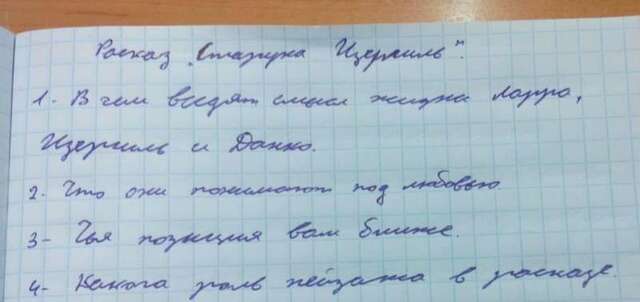 Расказ „Старуха Изергиль".
1. В чем видят смысл жизни Ларра,
Изергиль и Данко.
2. Что они понимают под любовью
3- Чья позиция вам ближе.
4- Какова роль пейзажа в расказе.